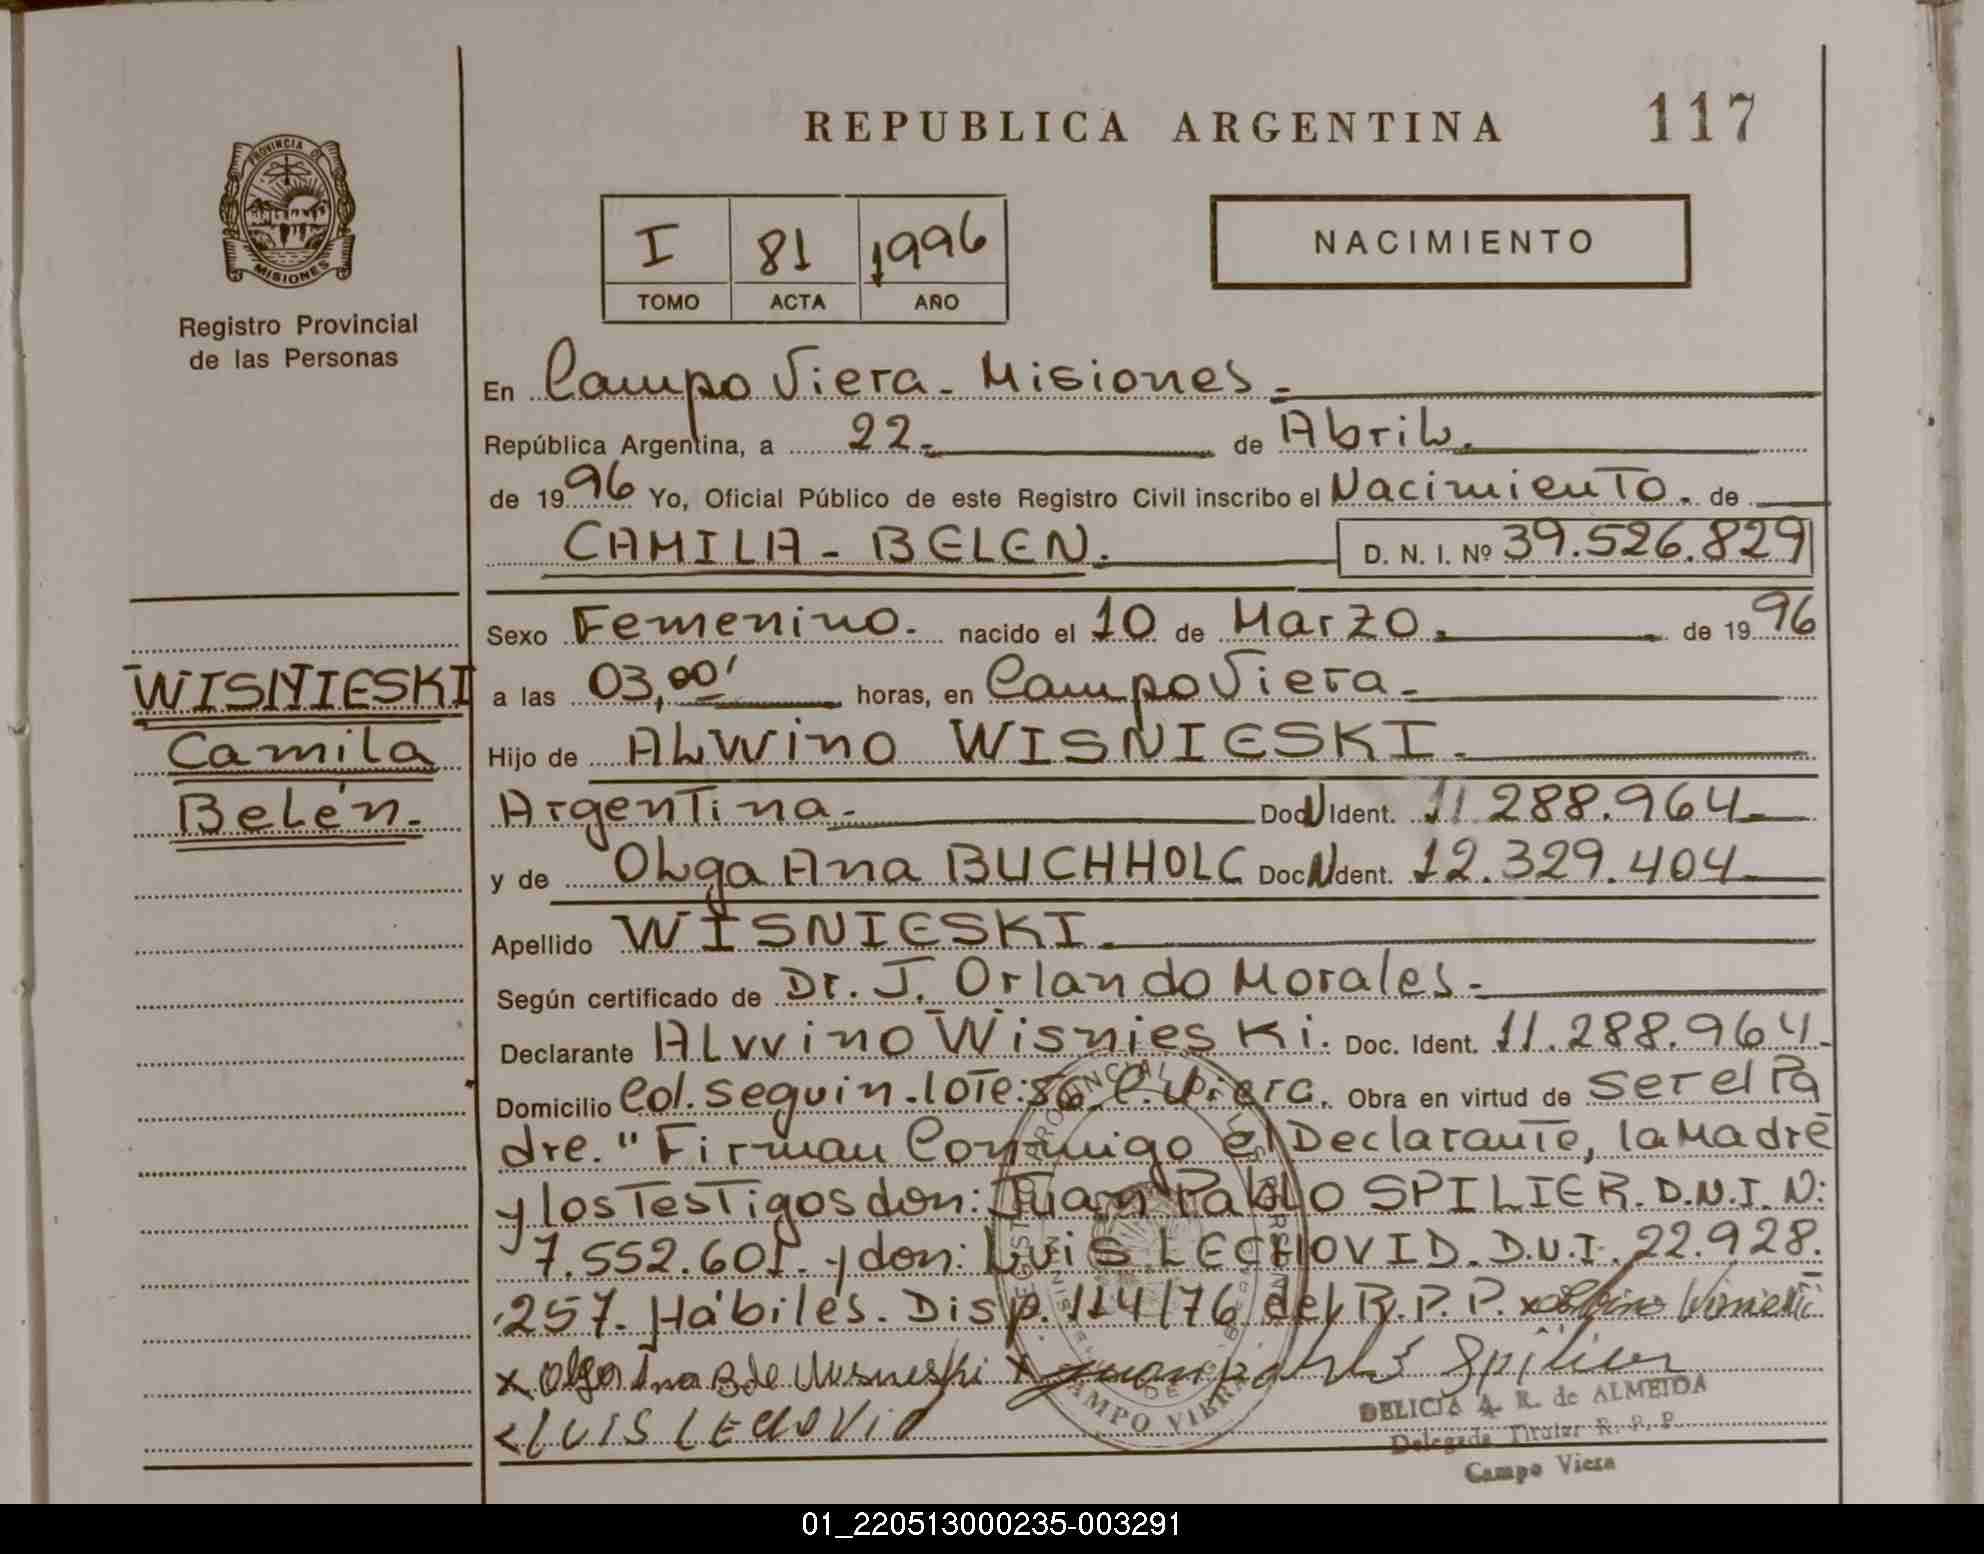 REPUBLICA ARGENTINA 117
PROVINCIA DE
MISIONES
Registro Provincial
de las Personas
I 81 1996
TOMO ACTA AÑO
NACIMIENTO
En Campo Viera - Misiones -
República Argentina, a 22.- de Abril.
de 1996 Yo, Oficial Público de este Registro Civil inscribo el Nacimiento. de
CAMILA - BELEN. D. N. I. Nº 39.526.829
Sexo Femenino. nacido el 10 de Marzo. de 1996
WISNIESKI
Camila
Belén.
a las 03,00' horas, en Campo Viera -
Hijo de ALWino WISNIESKI.
Argentina.- Doc N Ident. 11.288.964-
y de OLga Ana BUCHHOLC Doc N Ident. 12.329.404-
Apellido WISNIESKI.
Según certificado de Dr. J. Orlando Morales.-
Declarante ALwino Wisnieski. Doc. Ident. 11.288.964.-
Domicilio Col. Seguin. lote: 56 C. Viera. Obra en virtud de ser el Pa
dre. "Firman Conmigo el Declarante, la Madre
y los Testigos don: Juan Pablo SPILIER. D.N.I. N:
7.552.601. y don: Luis LECHOVID. D.N.I. 22.928.
257. Hábiles. Disp. 114/76 del R.P.P. x
x Olga Ana B de Wisnieski x Juan Pablo Spilier
x LUIS LECHOVID
CAMPO VIERA
DELICIA A. R. de ALMEIDA
Delegada Titular R. P. P.
Campo Viera
01_220513000235-003291